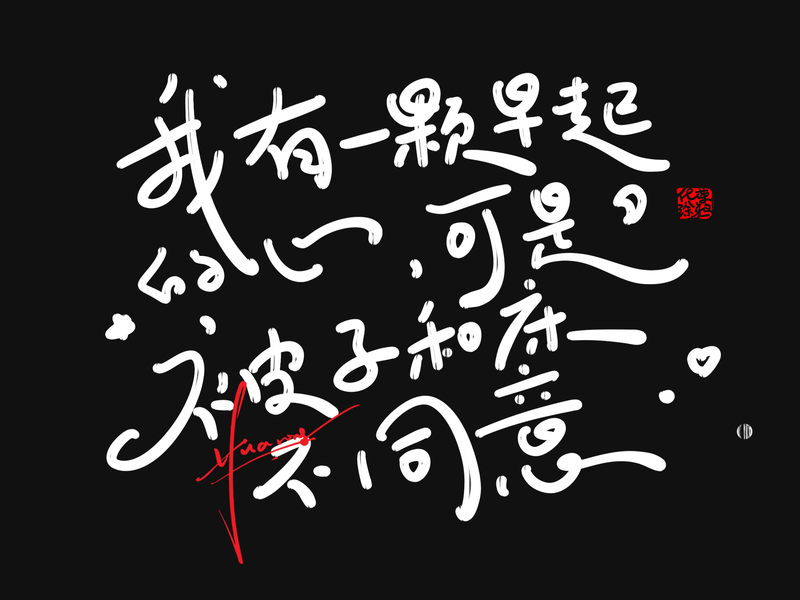 我有一颗早起
的心，可是
被子和床一
不同意
Huang